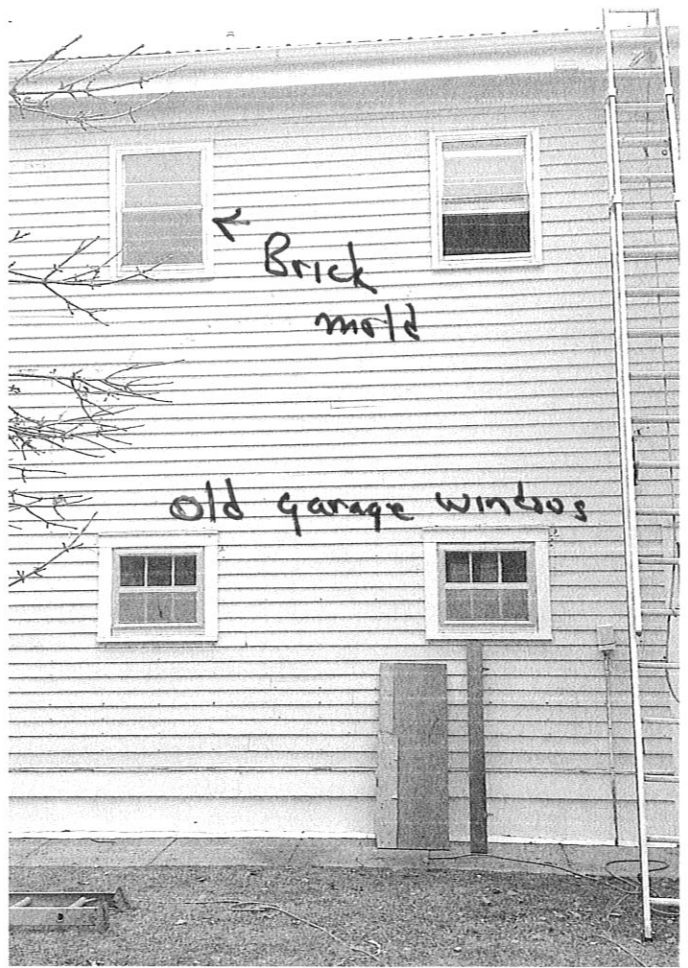 Brick
mold
Old Garage Windows